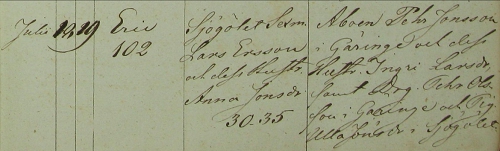 Julii 19 19 Eric 102
Sjögölet Sexm.
Lars Ersson
och dess Hustr.
Anna Jonsdr
30. 35
Aboen Pehr Jonsson
i Gäringe och dess
Hustr. Ingri Larsdr.
samt Drg. Pehr Ols-
son i Gäringe och Pig.
Ulla Jönsdr i Sjögölet